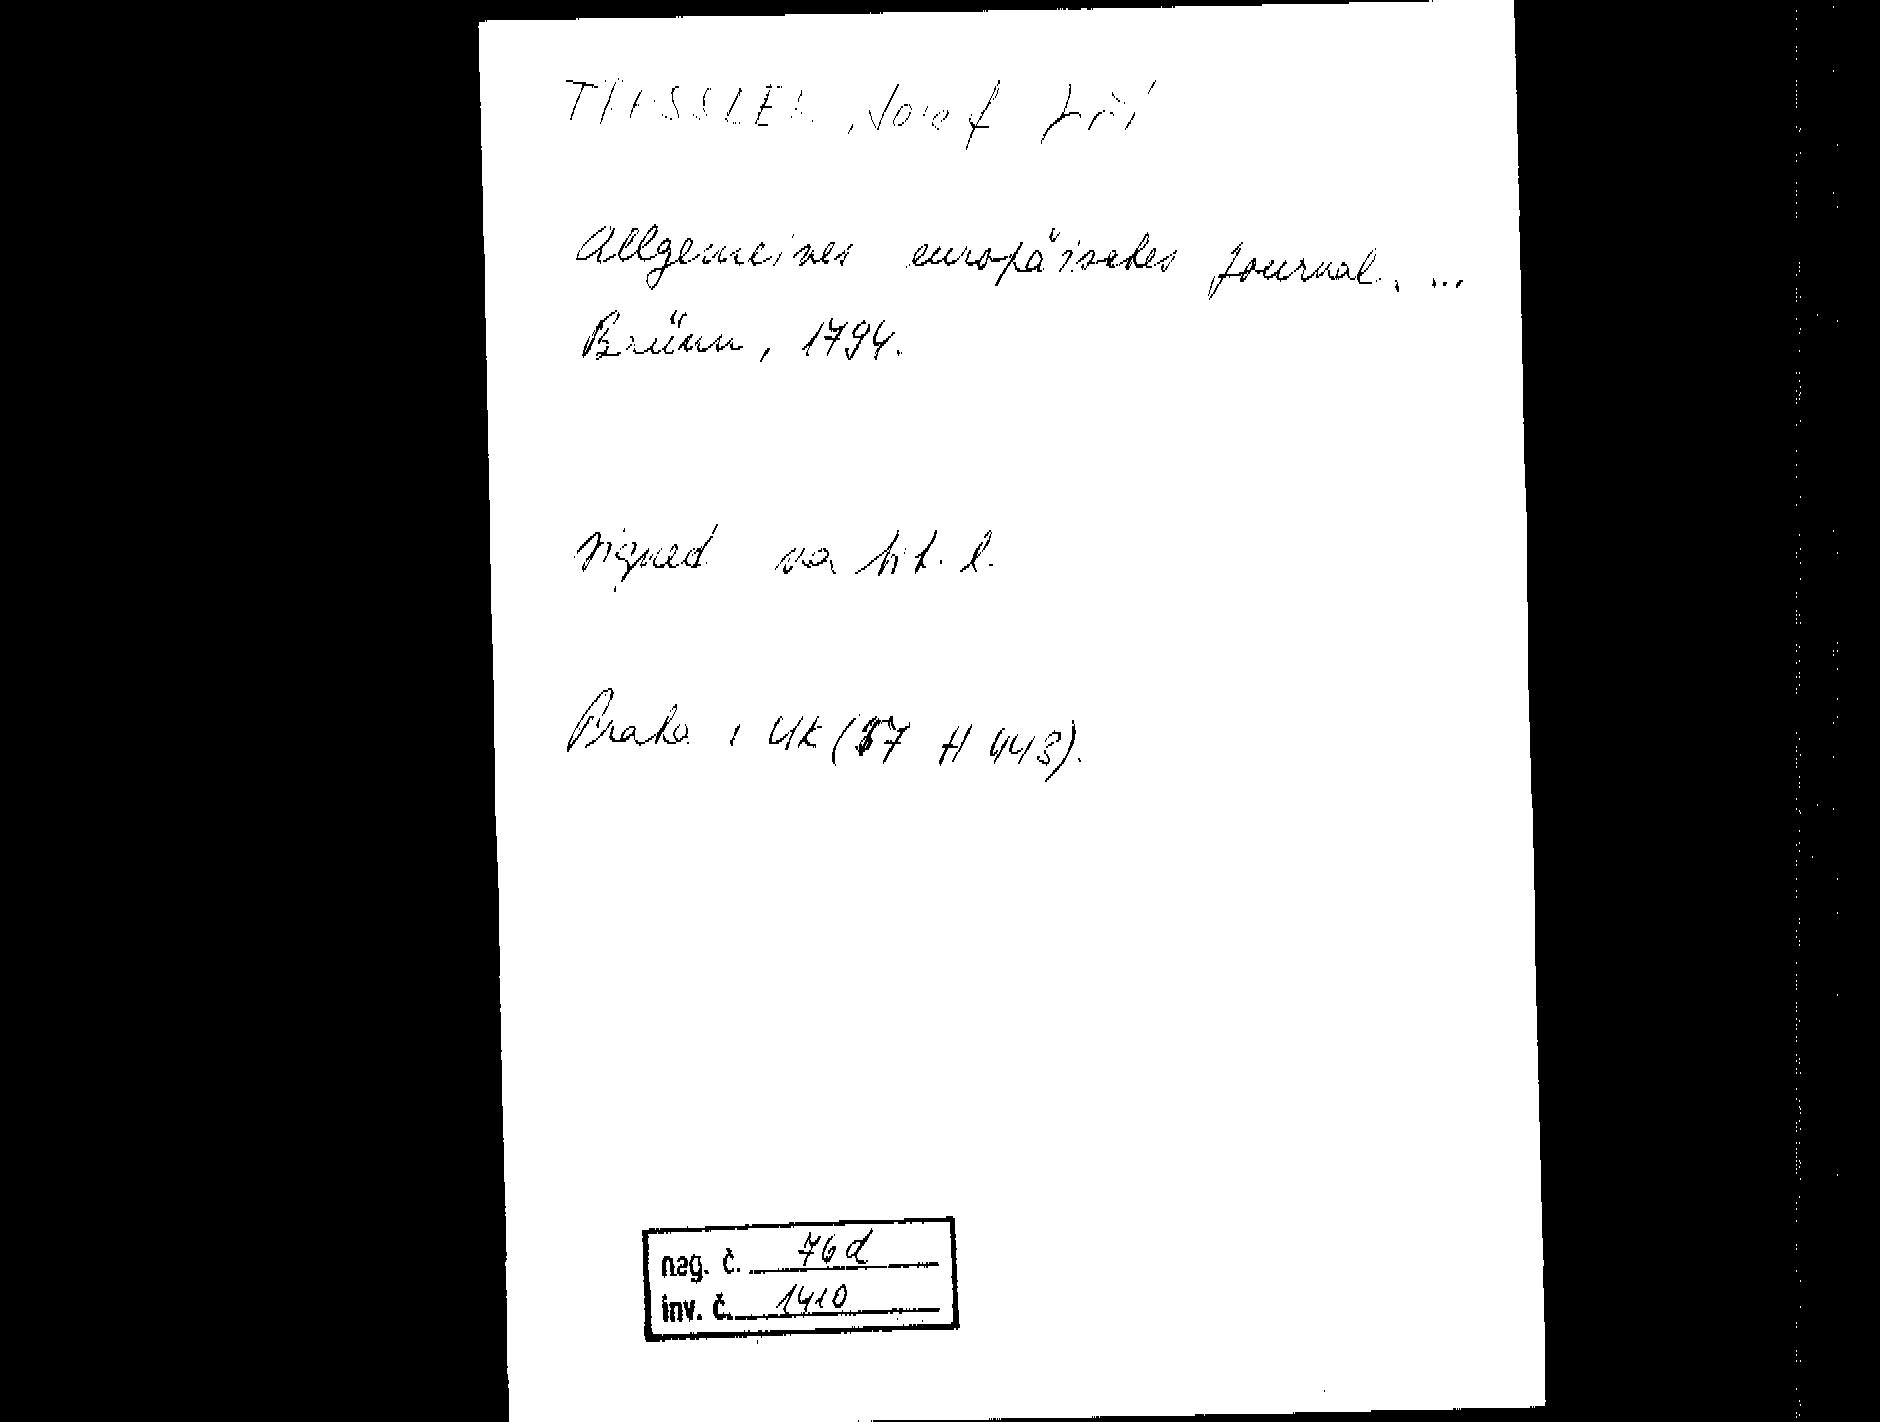 TRASSLER, Josef Jiří
Allgemeines europäisches Journal. ...
Brünn, 1794.
signed na tit. l.
Praha, UK (57 H 448).
neg. č. 76d
inv. č. 1410